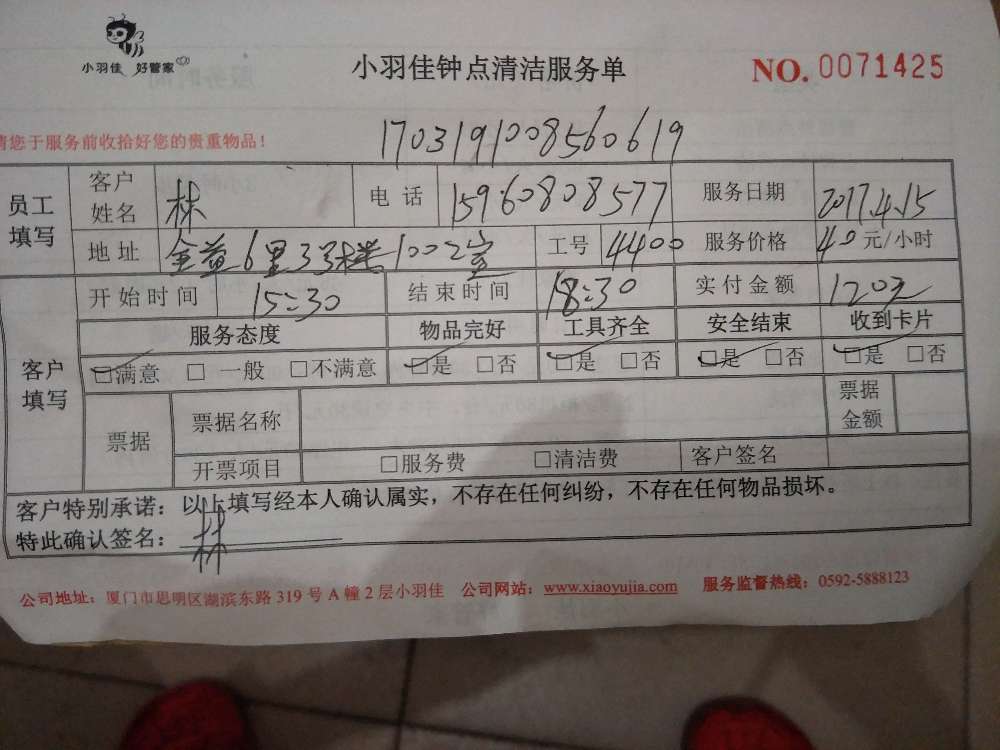 小羽佳 好管家
小羽佳钟点清洁服务单
NO. 0071425
请您于服务前收拾好您的贵重物品！
1703191008560619
员工填写 客户姓名 林 电话 15960808577 服务日期 2017.4.15
地址 金益6里33楼1002室 工号 4400 服务价格 40元/小时
客户填写 开始时间 15:30 结束时间 18:30 实付金额 120元
服务态度 物品完好 工具齐全 安全结束 收到卡片
☑满意 □一般 □不满意 ☑是 □否 ☑是 □否 ☑是 □否 ☑是 □否
票据 票据名称 票据金额
开票项目 □服务费 □清洁费 客户签名
客户特别承诺：以上填写经本人确认属实，不存在任何纠纷，不存在任何物品损坏。
特此确认签名：林
公司地址：厦门市思明区湖滨东路 319 号 A 幢 2 层小羽佳 公司网站：www.xiaoyujia.com 服务监督热线：0592-5888123